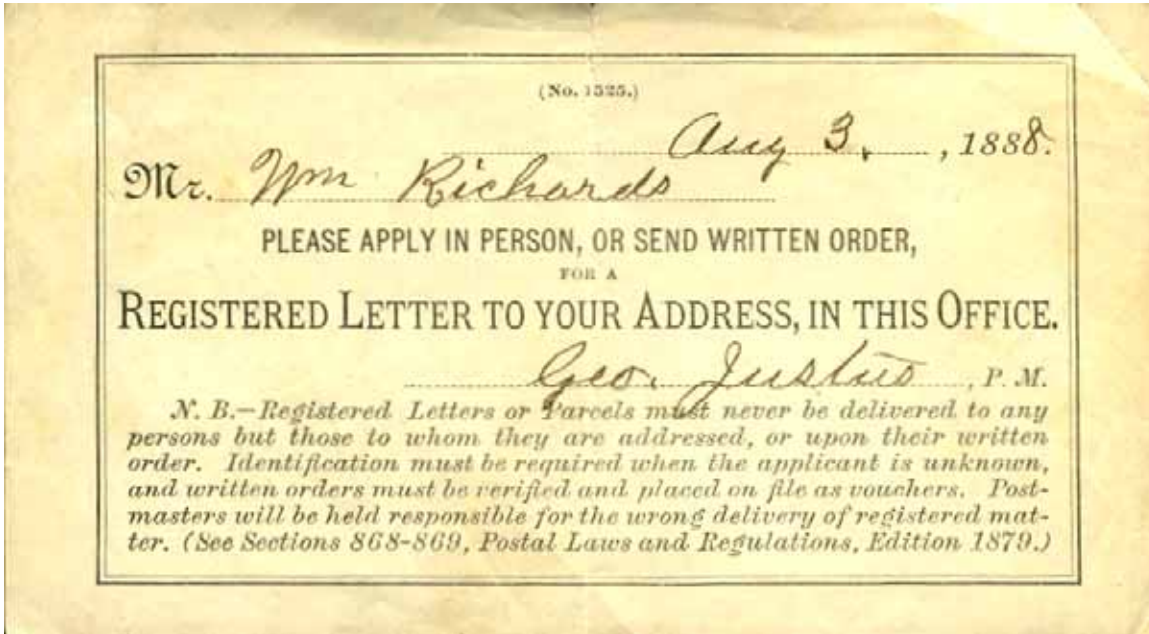 (No. 1525.)
Aug 3, 1888.
Mr. Wm Richards
PLEASE APPLY IN PERSON, OR SEND WRITTEN ORDER,
FOR A
REGISTERED LETTER TO YOUR ADDRESS, IN THIS OFFICE.
Geo. Justus, P. M.
N. B.—Registered Letters or Parcels must never be delivered to any
persons but those to whom they are addressed, or upon their written
order. Identification must be required when the applicant is unknown,
and written orders must be verified and placed on file as vouchers. Post-
masters will be held responsible for the wrong delivery of registered mat-
ter. (See Sections 868-869, Postal Laws and Regulations, Edition 1879.)